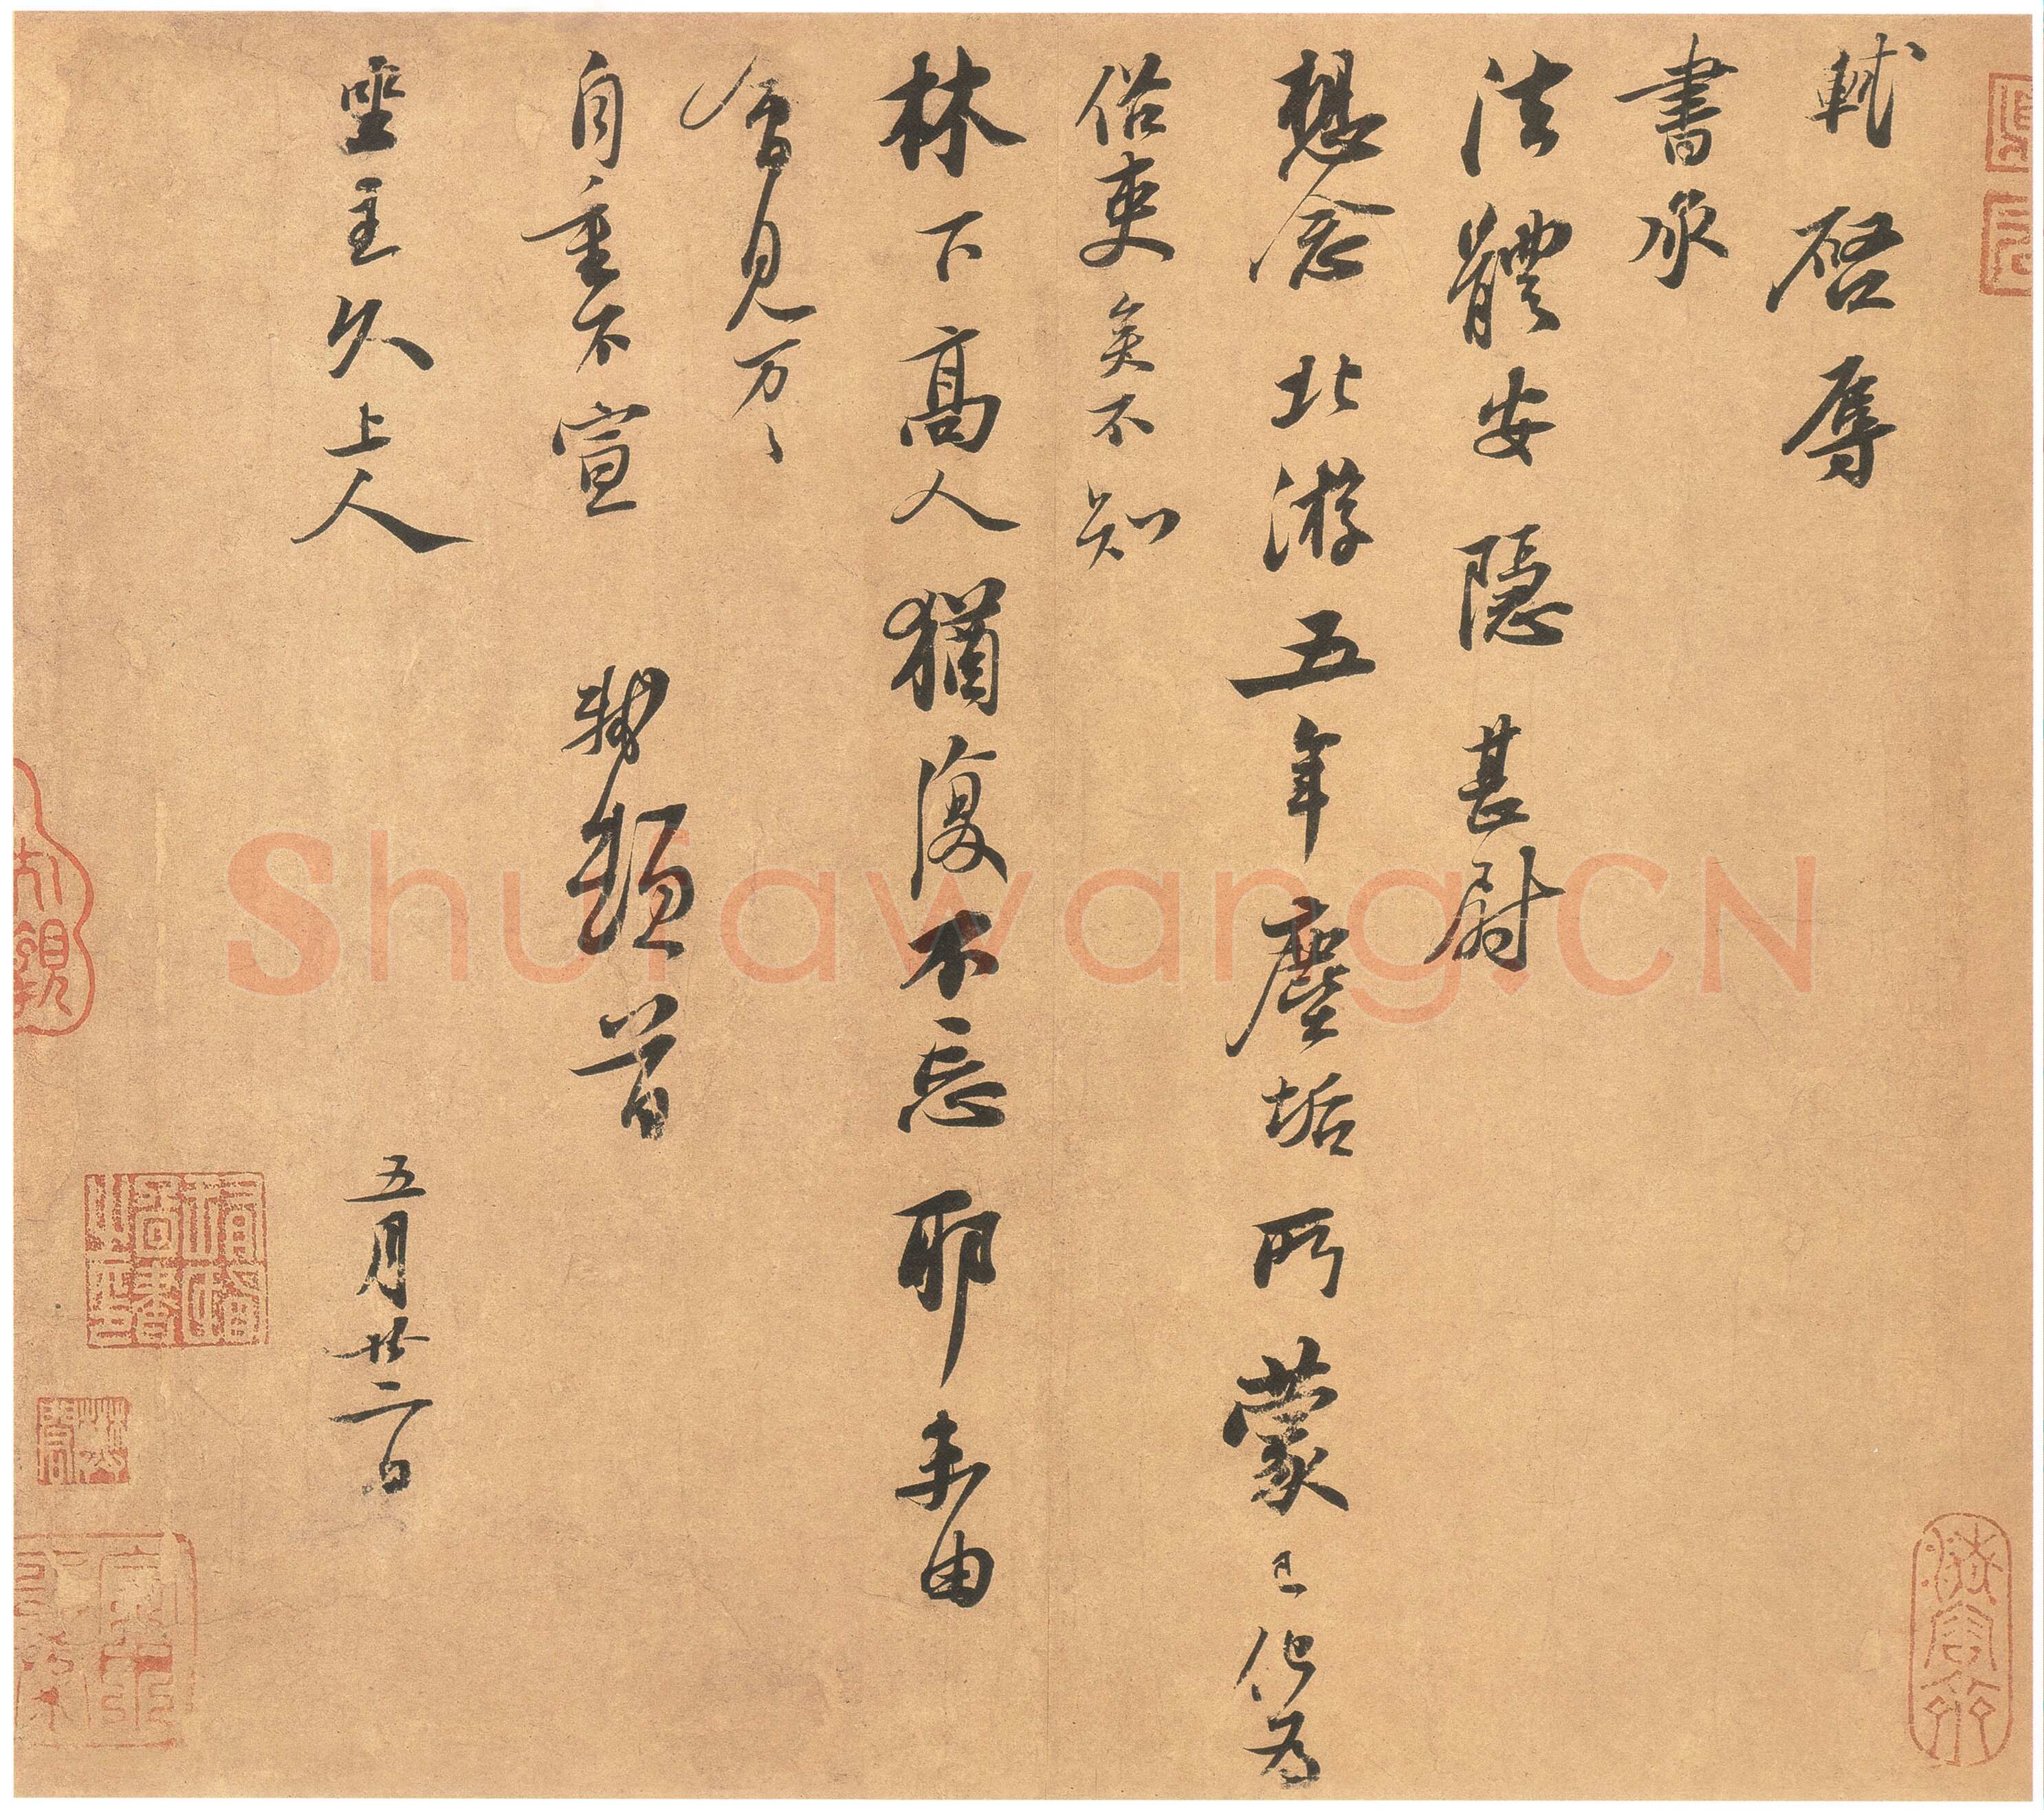 軾啓辱
書承
法體安隱甚尉
想念北游五年塵垢所蒙已化為
俗吏矣不知
林下高人猶復不忘耶未由
會見万〻
自重不宣 軾頓首
坐主久上人 五月廿二日
Shufawang.CN